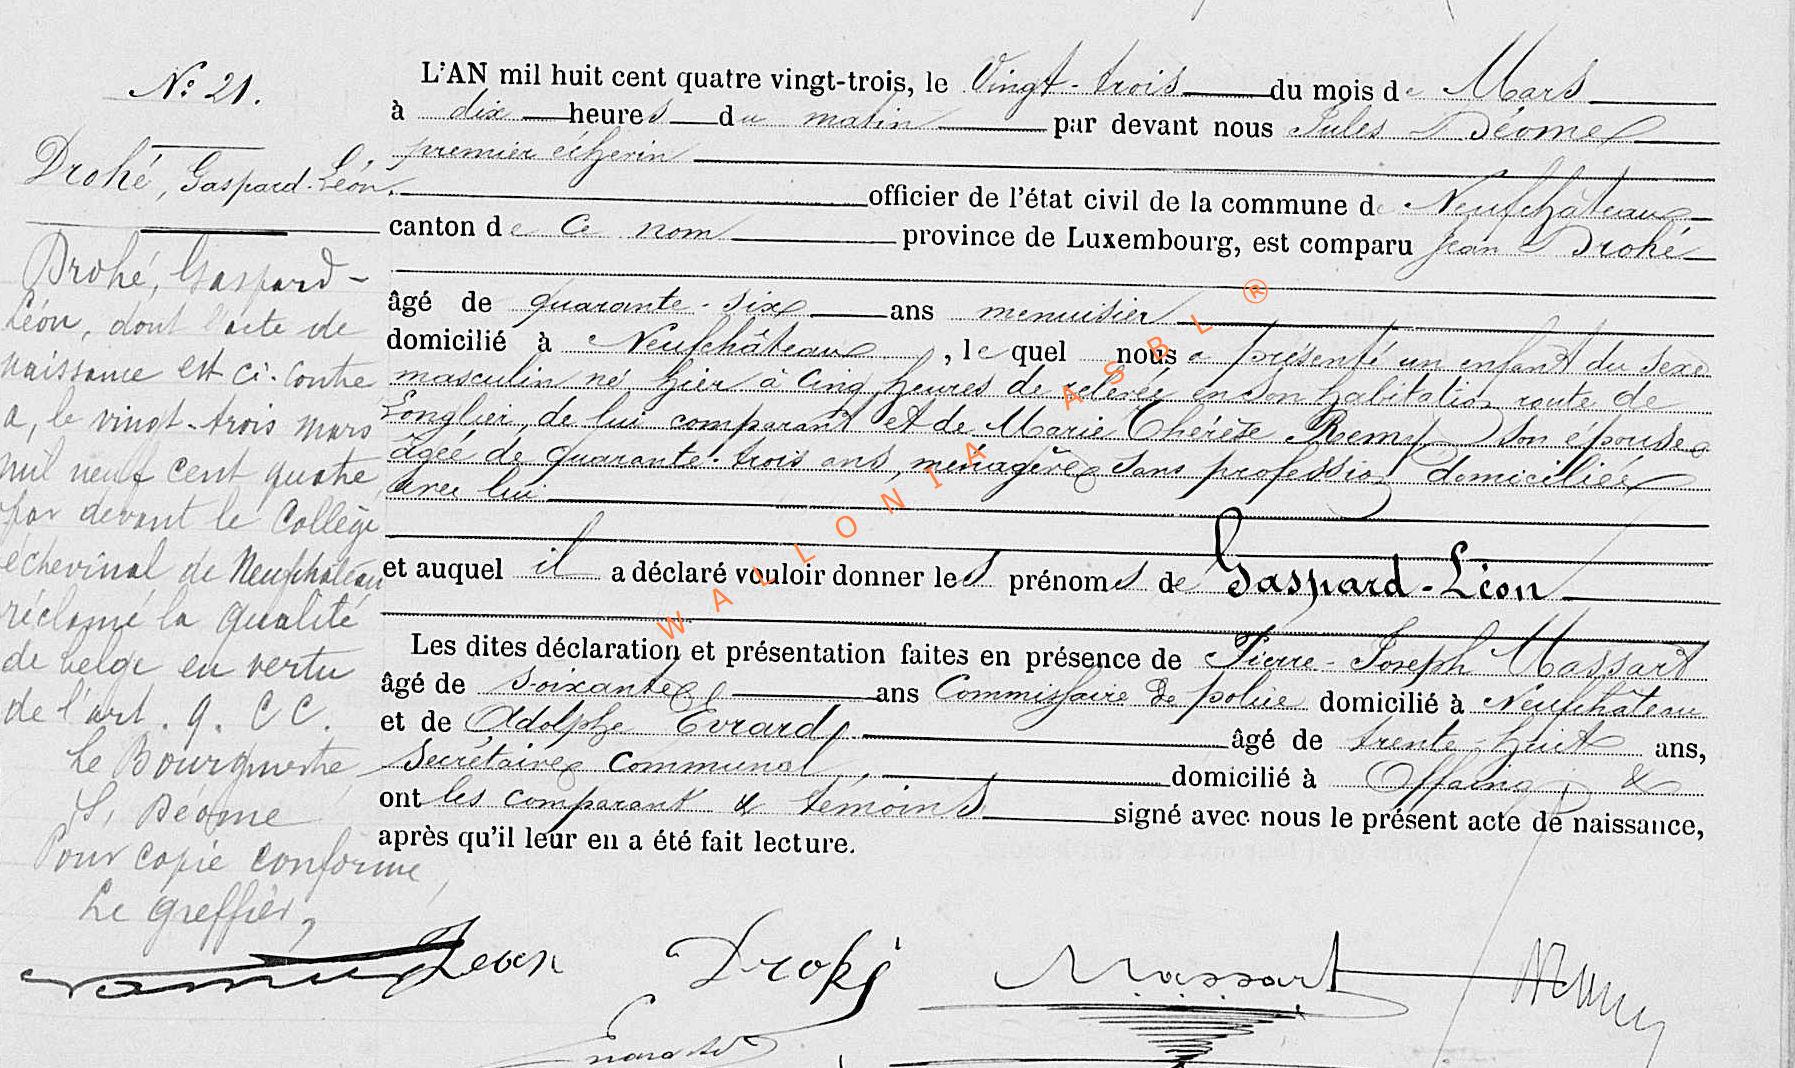 N° 21.
Drohé, Gaspard-Léon.
Drohé, Gaspard-
Léon, dont l'acte de
naissance est ci-contre
a, le vingt-trois mars
mil neuf cent quatre,
par devant le Collège
échevinal de Neufchateau
réclamé la qualité
de belge en vertu
de l'art. 9. C C.
Le Bourgmestre
Déome
Pour copie conforme,
Le greffier,
L'AN mil huit cent quatre vingt-trois, le Vingt-trois du mois de Mars
à dix heures du matin par devant nous Jules Déome
premier échevin
officier de l'état civil de la commune de Neufchâteau
canton de ce nom province de Luxembourg, est comparu Jean Drohé
âgé de quarante-six ans menuisier
domicilié à Neufchâteau, le quel nous a présenté un enfant du sexe
masculin né hier à cinq heures de relevée en son habitation route de
Longlier, de lui comparant et de Marie Thérèse Remy son épouse
âgée de quarante-trois ans, ménagère sans profession domiciliée
avec lui
et auquel il a déclaré vouloir donner les prénoms de Gaspard-Léon
Les dites déclaration et présentation faites en présence de Pierre-Joseph Massart
âgé de soixante ans Commissaire de police domicilié à Neufchâteau
et de Adolphe Evrard âgé de trente-huit ans,
Secrétaire Communal, domicilié à Offaing &
ont les comparant & témoins signé avec nous le présent acte de naissance,
après qu'il leur en a été fait lecture.
Jean Drohé Massart
Evrard
WALLONIA ASBL ®